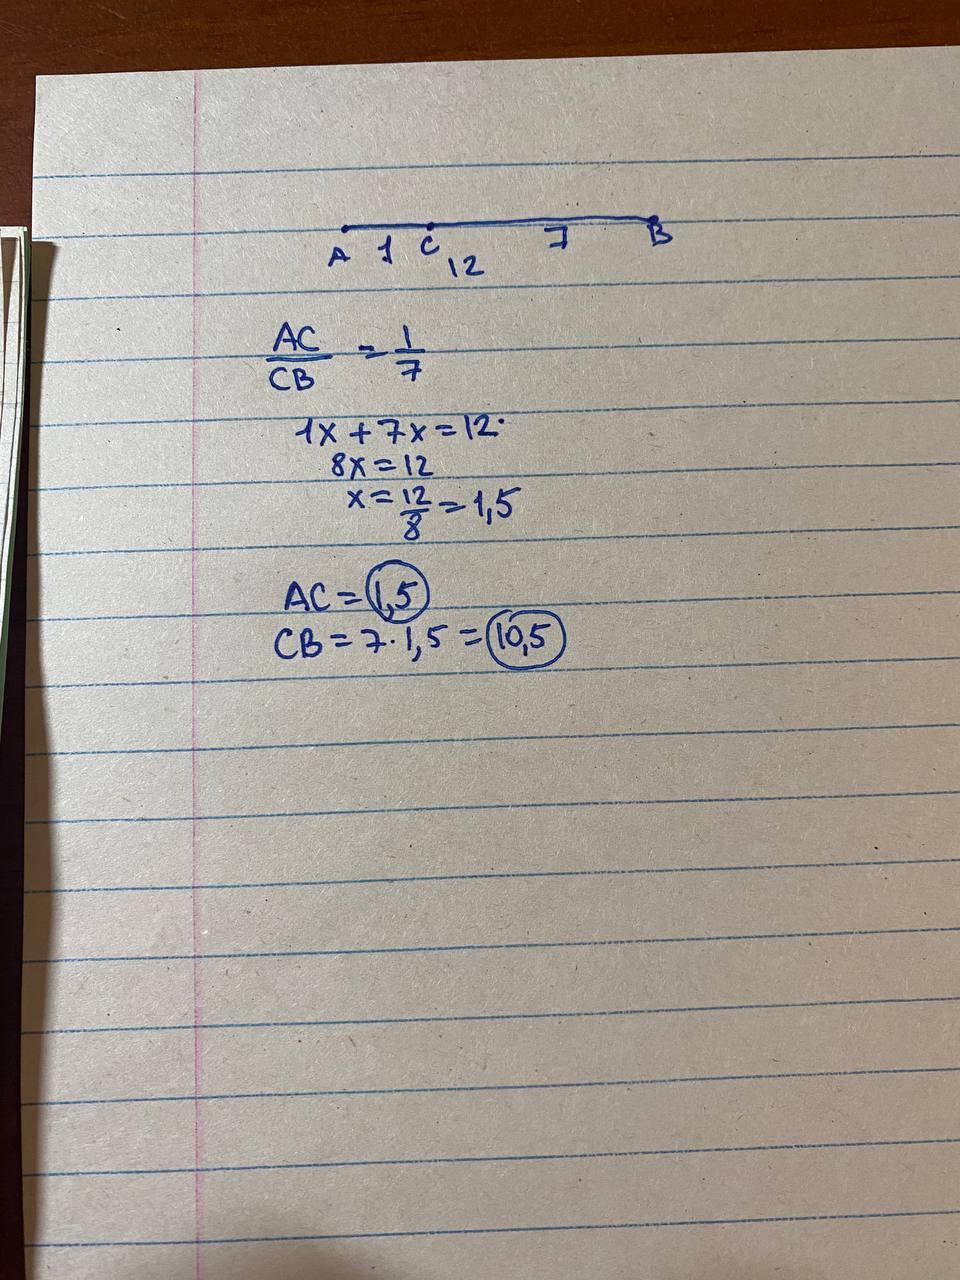 A 1 C 7 B
12
AC/CB = 1/7
1x + 7x = 12.
8x = 12
x = 12/8 = 1,5
AC = 1,5
CB = 7 · 1,5 = 10,5